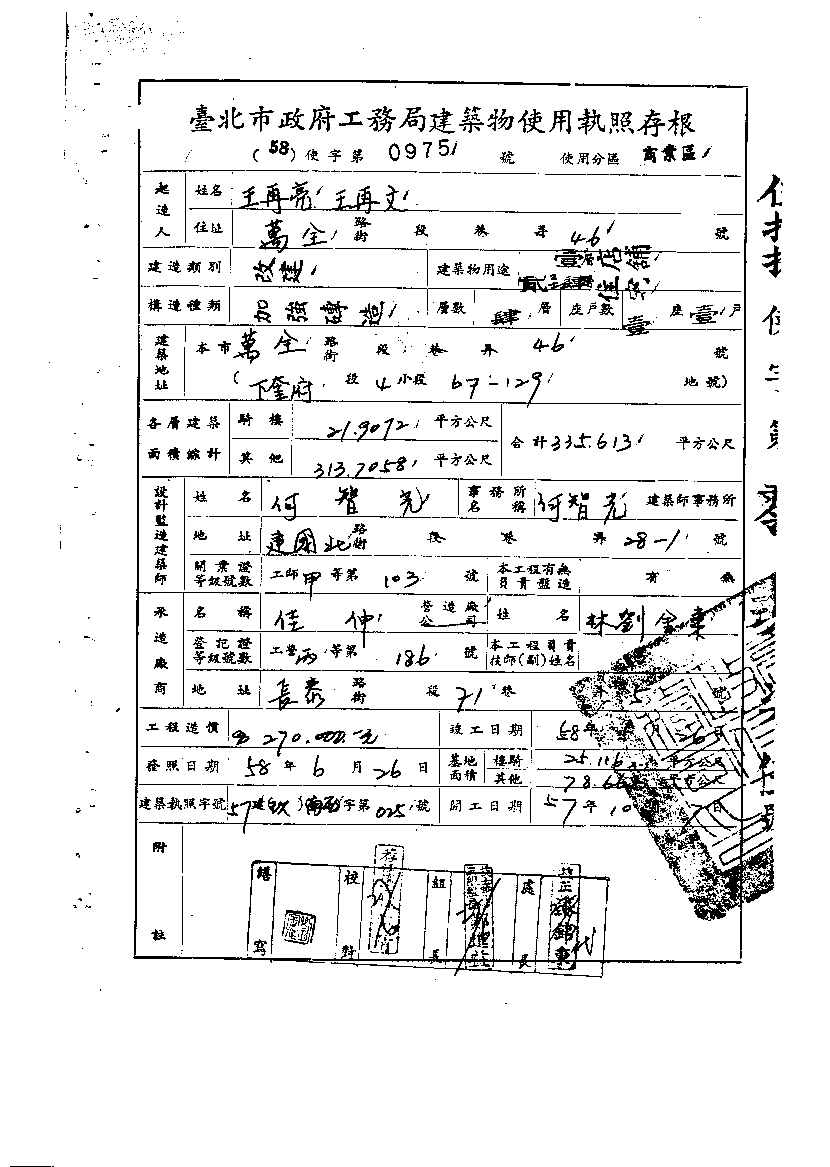 臺北市政府工務局建築物使用執照存根
(58) 使字第 0975 號 使用分區 商業區
起造人 姓名 王再亮 王再文
住址 萬全 路街 段 巷 弄 46 號
建造類別 改建 建築物用途 店舖 住宅
構造種類 加強磚造 層數 肆 層 座戶數 壹 座 壹 戶
建築地址 本市 萬全 路街 段 巷 弄 46 號
(下奎府 段 4 小段 67-129 地號)
各層建築面積總計 騎樓 21.9072 平方公尺 合計 335.613 平方公尺
其他 313.7058 平方公尺
設計監造建築師 姓名 何智光 事務所名稱 何智光 建築師事務所
地址 建國北 路街 段 巷 弄 28-1 號
開業證等級號數 工師 甲 等第 103 號 本工程有無負責監造 有 無
承造廠商 名稱 佳 伸 營造廠公司 姓名 林劉金東
登記證等級號數 工營 丙 等第 186 號 本工程負責技師(副)姓名
地址 長泰 路街 段 71 巷 號
工程造價 270.000.元 竣工日期 58 年 26 日
發照日期 58 年 6 月 26 日 基地面積 樓騎 25.116 平方公尺
其他 78.66 平方公尺
建築執照字號 57 建 字第 025 號 開工日期 57 年 10 日
附註
繕寫 校對 組長 處長
代
使字第